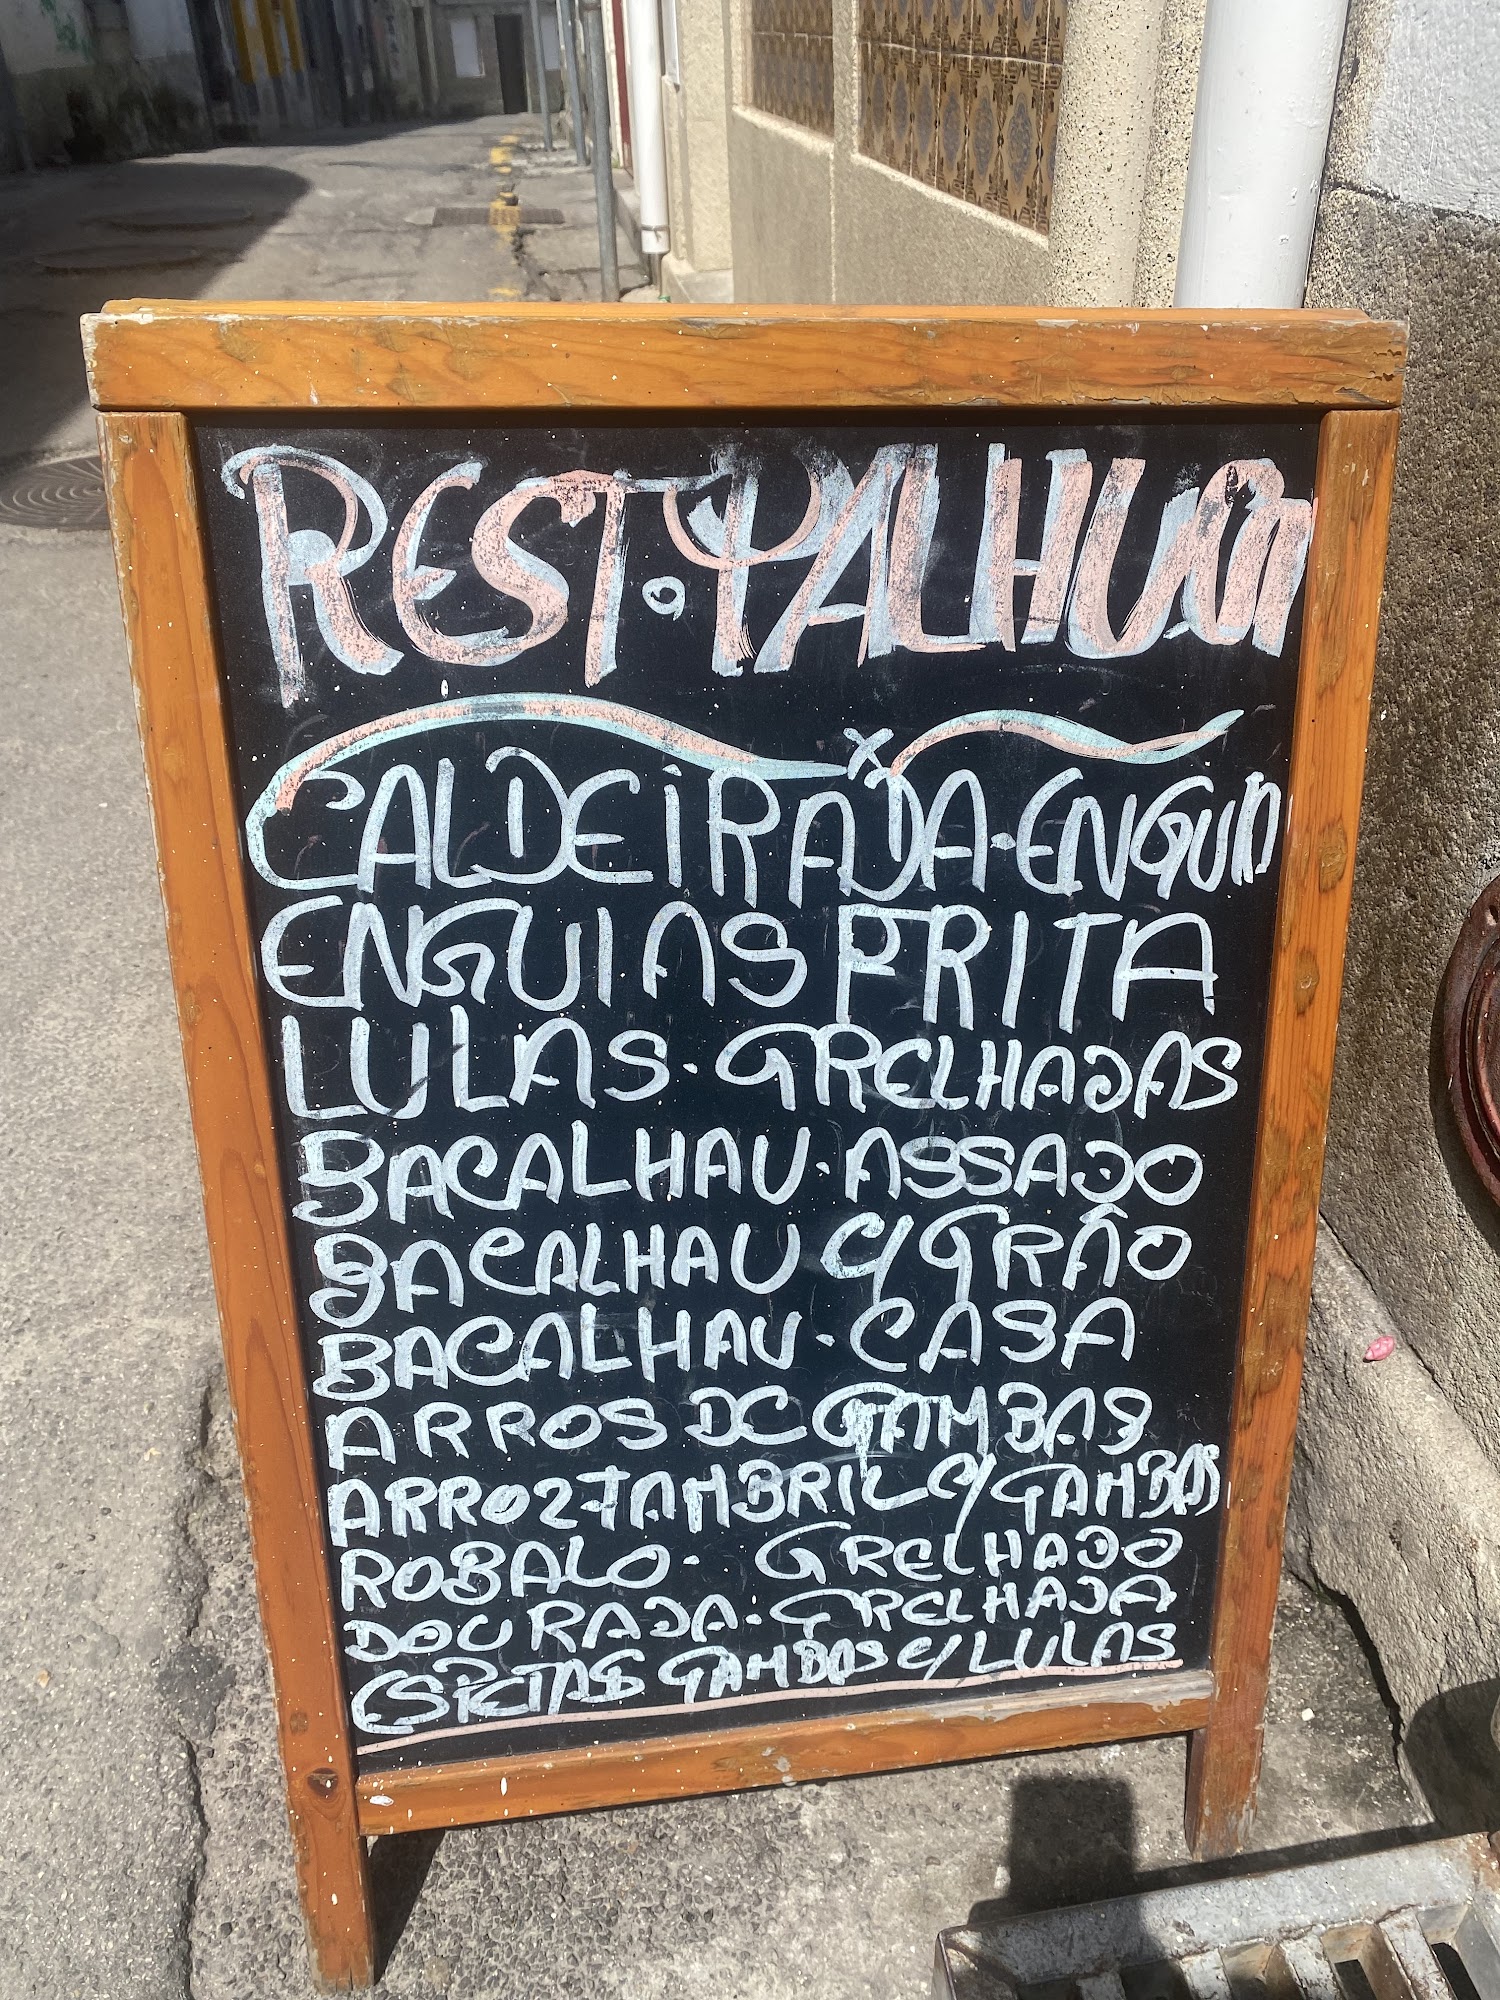 REST. PALHUÇA
CALDEIRADA. ENGUIA
ENGUIAS FRITA
LULAS. GRELHADAS
BACALHAU. ASSADO
BACALHAU C/ GRÃO
BACALHAU. CASA
ARROS DE GAMBAS
ARROZ TAMBRIL C/ GAMBAS
ROBALO. GRELHADO
DOURADA. GRELHADA
ESPETAS GAMBAS C/ LULAS